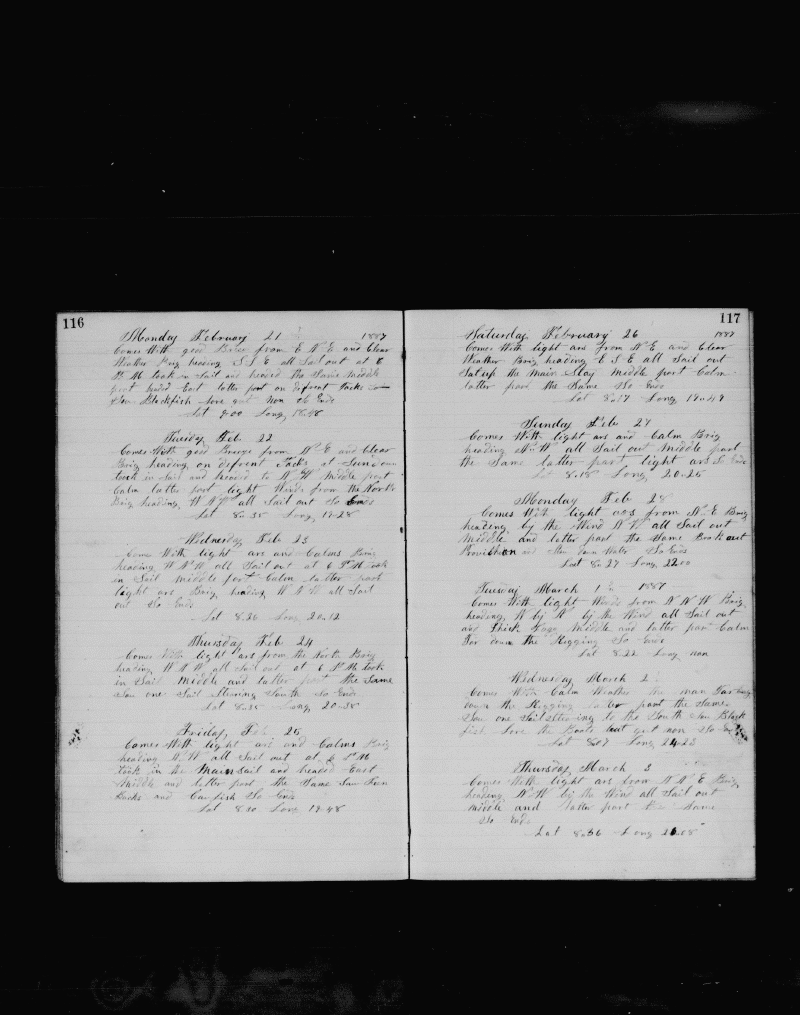 116
Monday February 21 1887
Comes With good Breze from E N E and Clear
Weather Brig heading S S E all Sail out at 6
P M took in Sail and headed the Same Middle
part headed East latter part on difrent tacks
Saw Blackfish lore got non So Ends
Lat 9.00 Long 18.48
Tuesday Feb 22
Comes With good Breeze from N E and Clear
Brig heading on difrent Tacks at Sundown
took in Sail and headed to N W Middle part
Calm latter part light Winds from the North
Brig heading W N W all Sail out So Ends
Lat 8.35 Long 19.28
Wednesday Feb 23
Comes With light ars and Calms Brig
heading W N W all Sail out at 6 P M took
in Sail Middle part Calm latter part
light ars Brig heading W N W all Sail
out So Ends
Lat 8.36 Long 20.12
Thursday Feb 24
Comes With light ars from the North Brig
heading W N W all Sail out at 6 P M took
in Sail Middle and latter part the Same
Saw one Sail Stearing South So Ends
Lat 8.35 Long 20.38
Friday Feb 25
Comes With light ars and Calms Brig
heading N W all Sail out at 6 P M
took in the Mainsail and headed East
Middle and latter part the Same Saw Fin
Backs and Cowfish So Ends
Lat 8.20 Long 19.48
117
Saturday February 26 1887
Comes With light ars from N E and Clear
Weather Brig heading E S E all Sail out
Satup the Main Stay Middle part Calm
latter part the Same So Ends
Lat 8.17 Long 19.49
Sunday Feb 27
Comes With light ars and Calm Brig
heading N W all Sail out Middle part
the Same latter part light ars So Ends
Lat 8.18 Long 20.25
Monday Feb 28
Comes With light ars from N E Brig
heading by the Wind N W all Sail out
Middle and latter part the Same Brok out
Provishion and Water So Ends
Lat 8.27 Long 22.00
Tuesday March 1 1887
Comes With light Winds from N N W Brig
heading by the Wind all Sail out
and thick Middle and latter part Calm
Tar down the Rigging So Ends
Lat 8.22 Long non
Wednesday March 2
Comes With Calm Weather the man Taring
down the Rigging latter part the Same
Saw one Sail Stearing to the South Saw Black
fish lore the Boats but got non So Ends
Lat 8.07 Long 24.23
Thursday March 3
Comes With light ars from N N E Brig
heading N W by the Wind all Sail out
Middle and latter part the Same
So Ends
Lat 8.36 Long 26.08